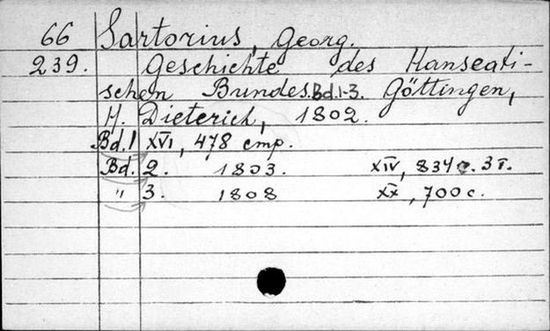 66 Sartorius, Georg.
239. Geschichte des Hanseati-
schen Bundes. Bd. 1-3. Göttingen,
H. Dieterich, 1802.
Bd. 1 XVI, 478 стр.
Bd. 2. 1803. XIV, 834 с. 3 т.
" 3. 1808 XX, 700 с.